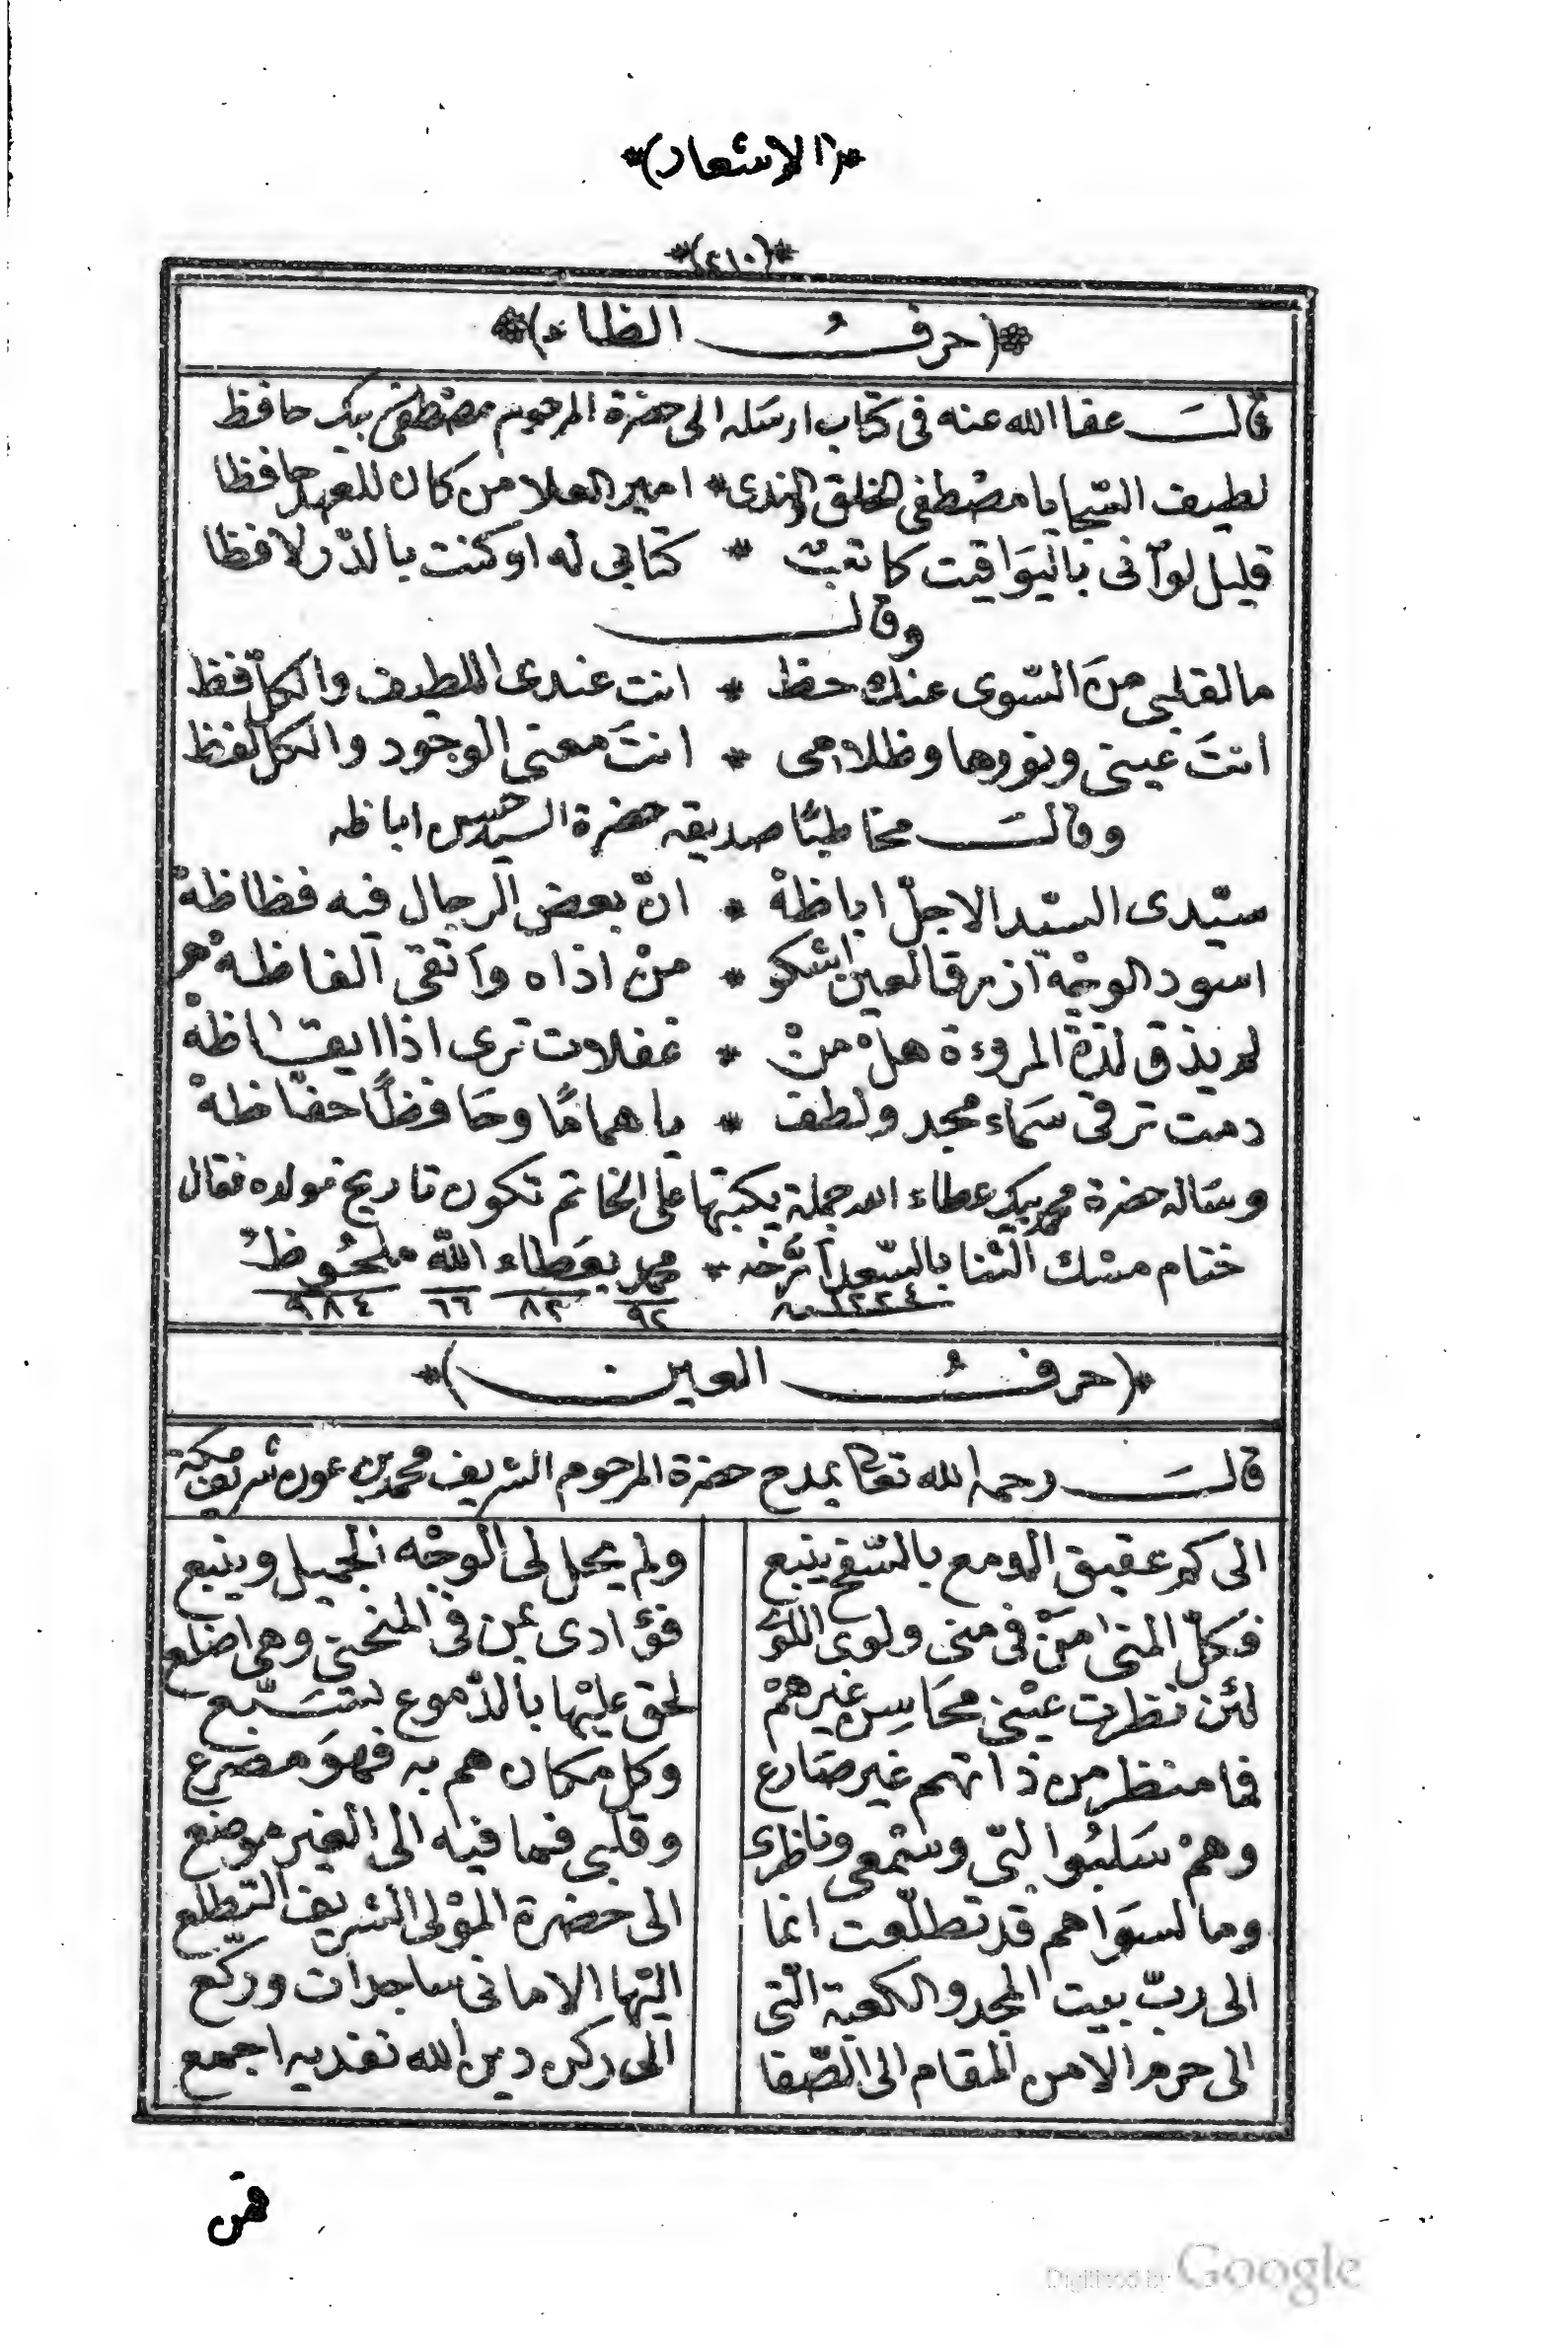 *(الاشعار)*
*(٢١٠)*
*(حرفُ الظاء)*
قالَ عفا الله عنه فى كتاب ارسَله الى حضرة المرحوم مصْطفى بيك حافظ
لطيف السّجايا مصْطفى الخلق والندى * امير العلا من كان للعهد حافظا
قليل لوَ آنى باليَواقيت كاتبٌ * كتابى له او كنت بالدّر لافظا
وقال
ما لقلبى منَ السّوى عنك حظ * انت عندى اللطيف والكلّ فظ
انتَ عينى ونورها وظلامى * انتَ معنى الوجُود والكل لفظ
وقالَ مخاطبًا صديقه حضرة السيد حسن اباظه
سيّدى السيّد الاجلّ اباظهْ * انّ بعض الرجال فيه فظاظهْ
اسود الوجْه ازرق العين اشكو * منْ اذاه واَتقى الفاظهْ
لم يذق لذّة المروءة هلْ منْ * غفلات ترى اذا ايقاظهْ
دمت ترقى سَماء مجد ولطف * يا همامًا وحَافظًا حفّاظهْ
وسَاله حضرة محمد بيك عطاء الله جملة يكتبها على الخاتم تكون تاريخ مولده فقال
ختام مسْك الثنا بالسّعد اَرَّخه * محمد بعَطاء الله ملحُوظُ
١٢٢٤ سنه ٩٢ ٨٢ ٦٦ ٩٨٤
*(حرفُ العين)*
قالَ رحمه الله تعالى يمدح حضرة المرحوم الشريف محمد بن عون شريف مكة
الى كم عقيق الدمع بالسّفح ينبع ولم يحل لى الوجْه الجميل وينبع
فكلّ المنى امَنْ فى منى ولوى اللوَى فؤادى بمن فى المنحنى وهى اضلع
لئن نظرت عيْنى محَاسِن غيرهمْ لحق عليْها بالدّموع تستَبّع
فما منظر من ذاتهم غير صَارع وكل مكان هم به فهوَ مصرع
وهمْ سَلبُوا لبّى وسمْعى وناظرى وقلبى فما فيه الى الغير موضع
وما لسوَاهم قد تطلّعت انما الى حضرة الموْلى الشريف التطلع
الى ربّ بيت المجد والكعبة الّتى اليْها الامانى ساجدات وركّع
الى حرم الامن المقام الى الصّفا الى ركن دين الله نفديه اجمع
فمن
Digitized by Google